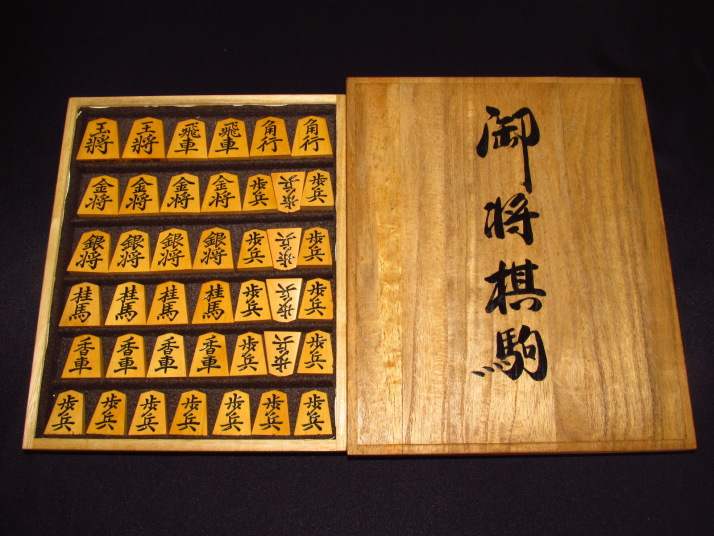 玉将 王将 飛車 飛車 角行 角行
金将 金将 金将 金将 歩兵 歩兵 歩兵
銀将 銀将 銀将 銀将 歩兵 歩兵 歩兵
桂馬 桂馬 桂馬 桂馬 歩兵 歩兵 歩兵
香車 香車 香車 香車 歩兵 歩兵 歩兵
歩兵 歩兵 歩兵 歩兵 歩兵 歩兵 歩兵
御将棋駒